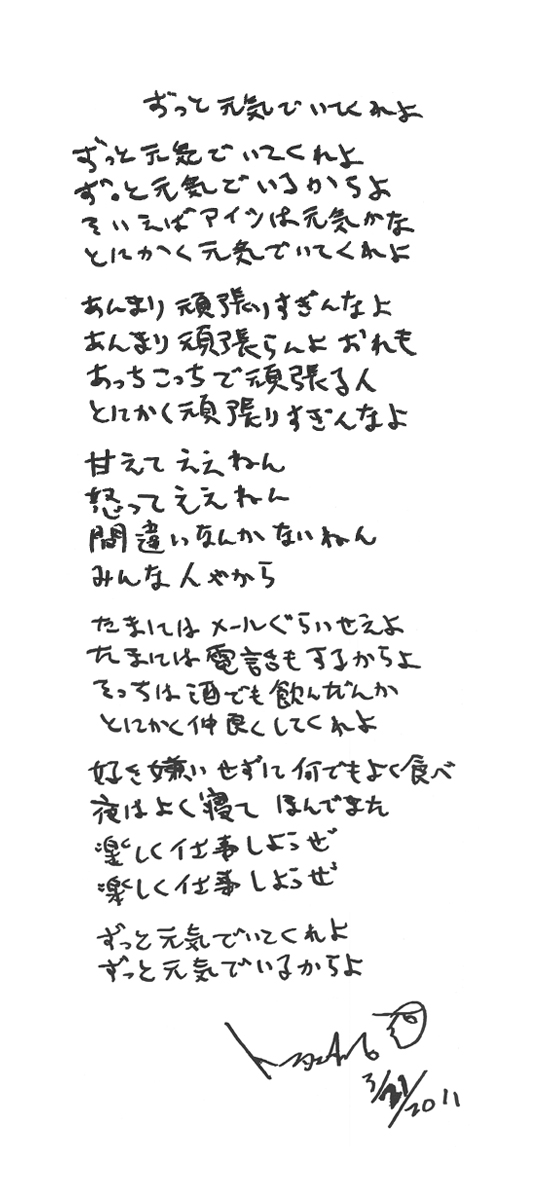 ずっと元気でいてくれよ
ずっと元気でいてくれよ
ずっと元気でいるからよ
そいえばアイツは元気かな
とにかく元気でいてくれよ
あんまり頑張りすぎんなよ
あんまり頑張らんよ おれも
あっちこっちで頑張る人
とにかく頑張りすぎんなよ
甘えてええねん
怒ってええねん
間違いなんかないねん
みんな人やから
たまにはメールぐらいせえよ
たまには電話もするからよ
そっちは酒でも飲んだんか
とにかく仲良くしてくれよ
好き嫌いせずに何でもよく食べ
夜はよく寝て ほんでまた
楽しく仕事しようぜ
楽しく仕事しようぜ
ずっと元気でいてくれよ
ずっと元気でいるからよ
3/21/2011